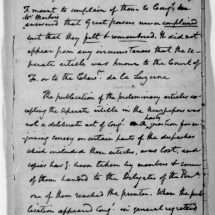 T. meant to complain of them to Congs.
Mr. 
answered that Great powers never complained
but that they felt & remembered. It did not
appear from any circumstances that the se-
parate article was known to the Court of
or to the Chevr. de la Luzerne
The publication of the preliminary articles ex-
cepting the separate article in the newspapers was
not a deliberate act of Congs. A
copies on certain parts of the despatches
which included these articles, was lost, and
copies have been taken by members & some
of them handed to the Delegates of the Pena.
one of them reached the printer. When the pub-
lication appeared Congs. in general regretted